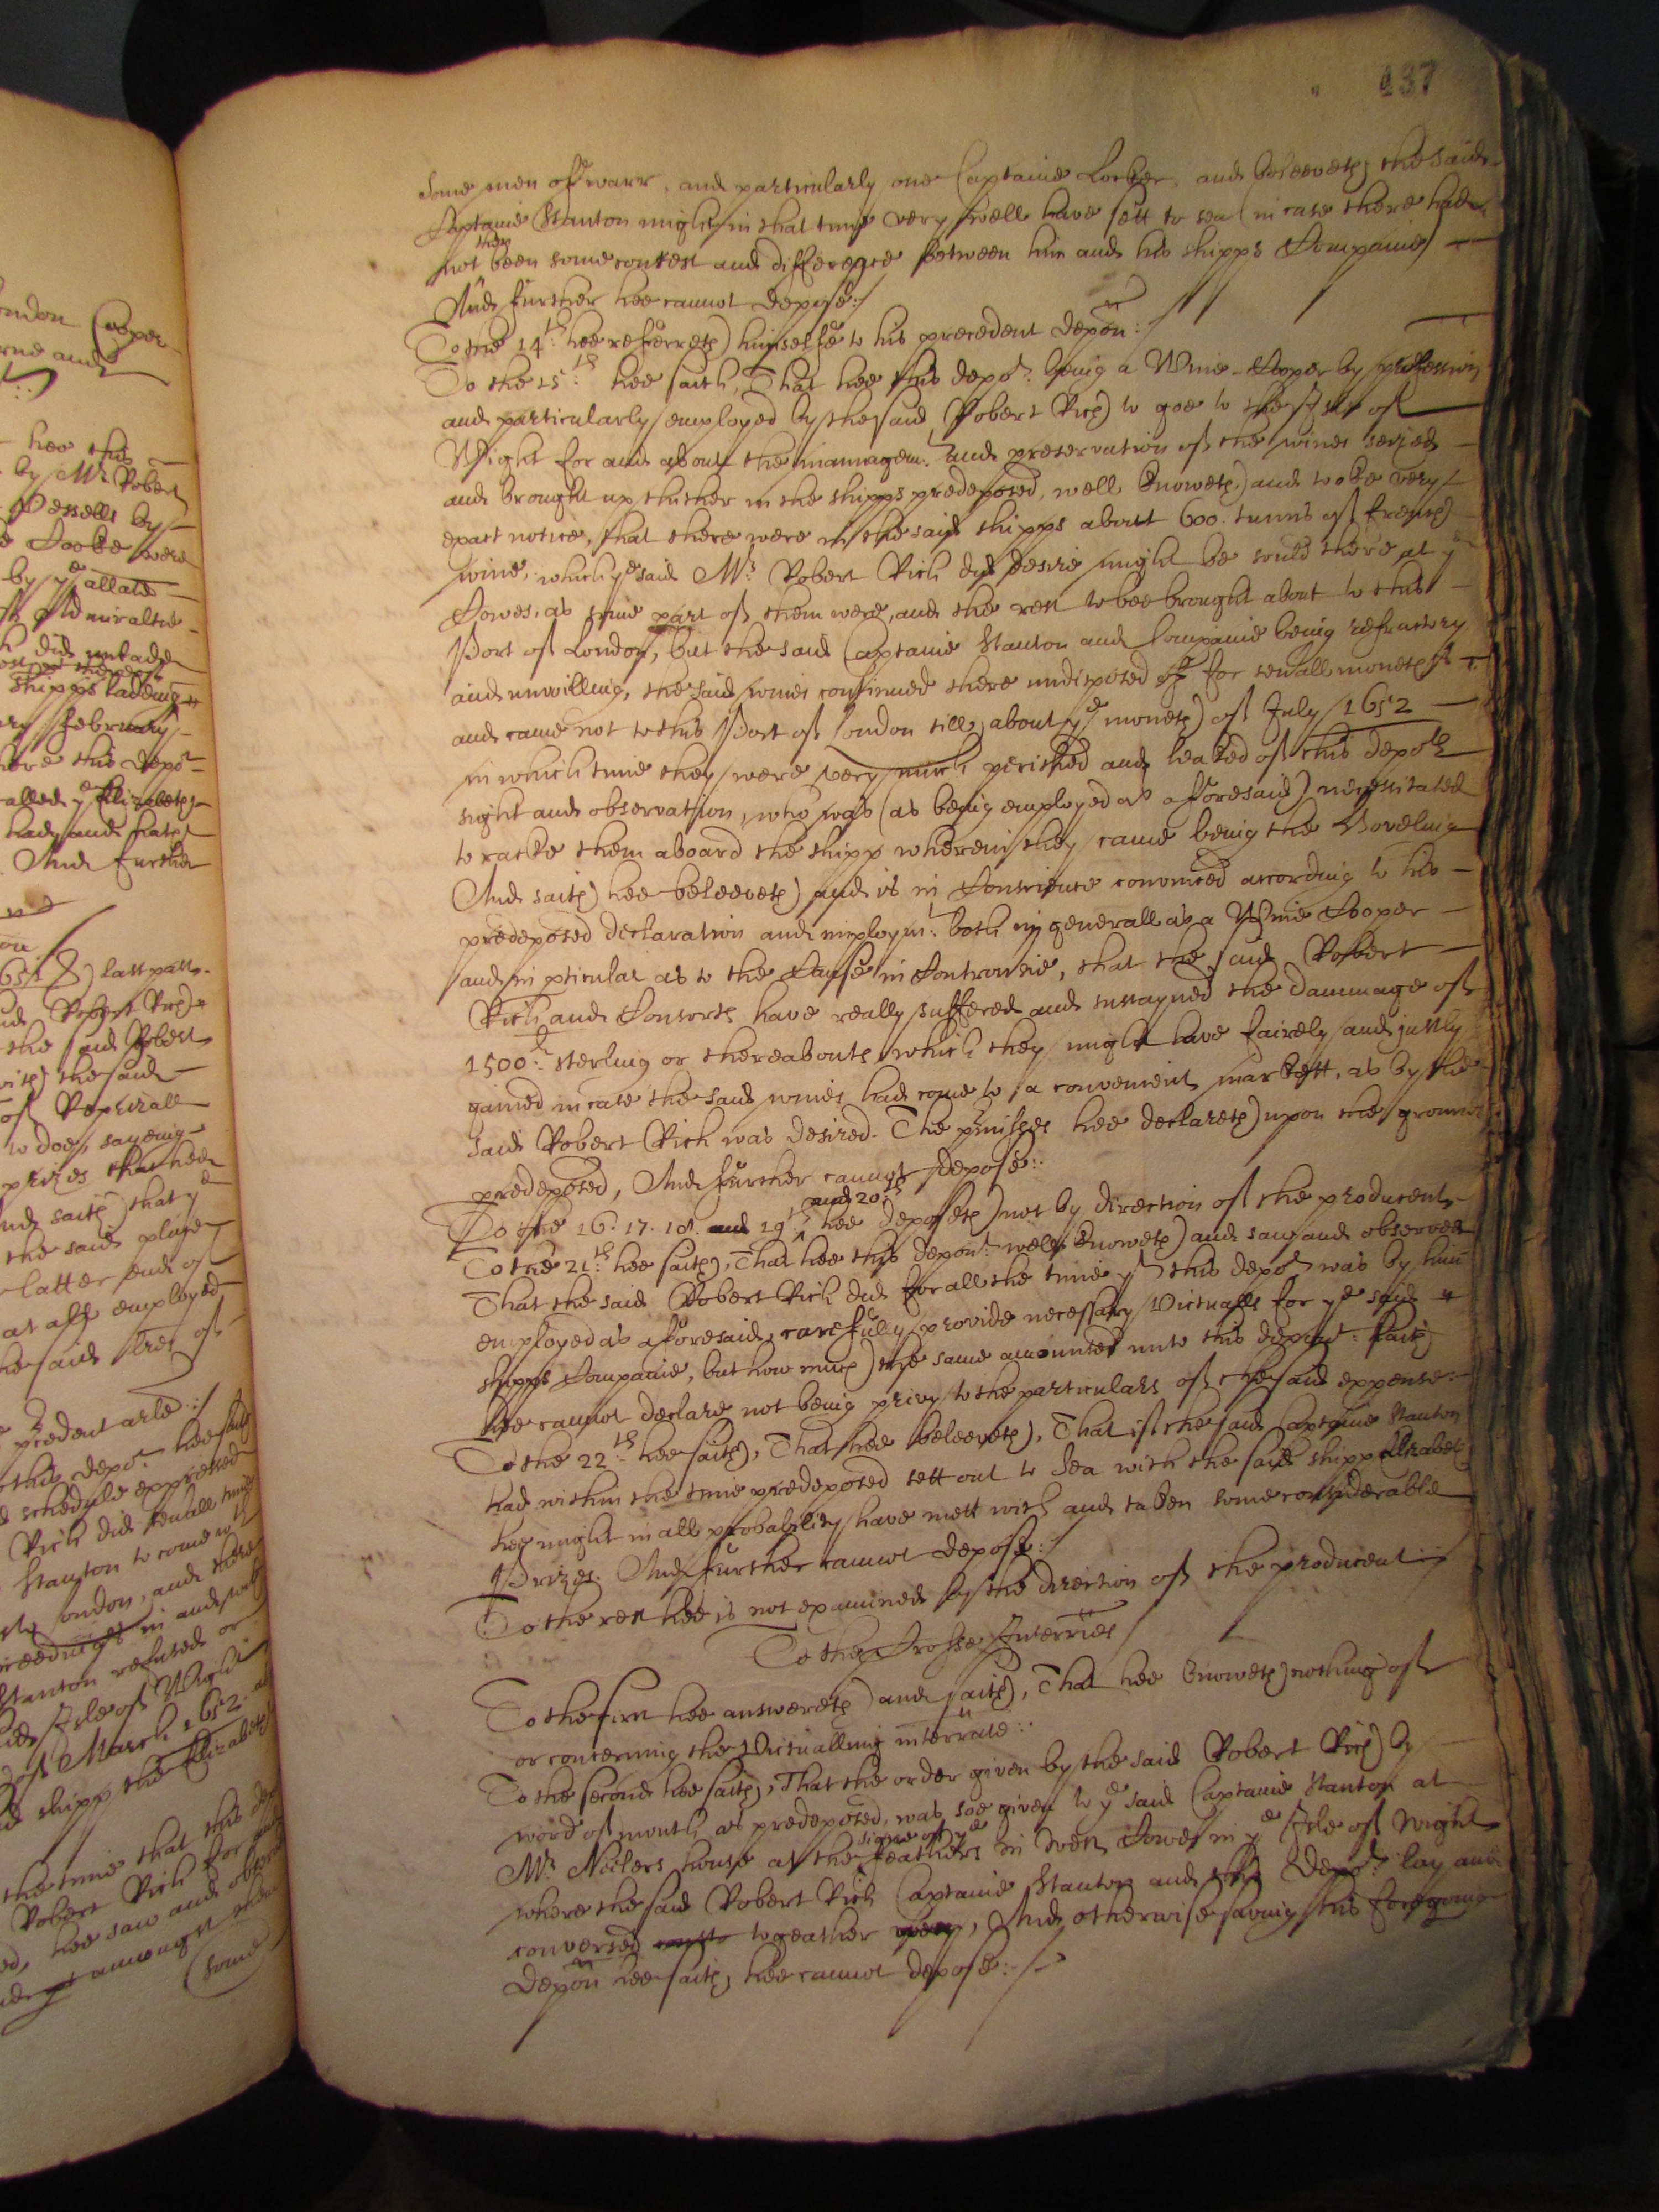 ondon Cooper
hee this
by Mr. Robert
Vessells by
Cooke were
by ye allate
Admiraltie
did unlade
shipps ladeing
February
here this depot
called ye Elizabeth
had, and hath
And further
last past
Robert Rich
the said Robert
with the said
of Reprizall
to doe, sayeing
prizes that hee
And saith that ye
the said place
latter end of
at all employed
the said tres of
precedent arlé:/
this depot. hee saith
schedule expressed
Rich did severall times
Stanton to come wth
ondon, and there
in and
Stanton refused or
Isle of Wight
of March 1652
shipp the Elizabeth
the time that this
Robert Rich for
hee saw and
amongst
(some
137
Some men of warr, and particularly one Captaine Locker, and beleeveth the said
Captaine Stanton might in that time very well have sett to sea (in case there had
then
not been some contest and difference between him and his shipps Companie)
And further hee cannot depose:/
To the 14th: hee referreth himselfe to his precedent depon:/
To the 15th: hee saith, That hee this depot. being a Wine-Cooper by profession
and particularly employed by the said Robert Rich to goe to the Isle of
Wight for and about the managemt. and preservation of the wines seized
and brought up thither in the shipps predeposed, well knoweth, and tooke very
exact notice, that there were in the said shipps about 600. tunns of French
wine, which ye said Mr. Robert Rich did desire might be sould there at ye
Cowes, as some part of them were, and the rest to bee brought about to this
Port of London, but the said Captaine Stanton and Companie being refractory
and unwilling, the said wines continued there undisposed of for severall moneths
and came not to this Port of London till about ye moneth of July 1652
in which time they were very much perished and leaked of this depots
sight and observation, who was (as being employed as aforesaid) necessitated
to racke them aboard the shipp wherein they came being the
And saith hee beleeveth and is in Conscience convinced according to his
predeposed declaration and imploymt. both in generall as a Wine Cooper
and in pticular as to the Cause in Controversie, that the said Robert
Rich and Consorts have really suffered and sustayned the dammage of
1500li sterling or thereabouts which they might have fairely and justly
gained in case the said wines had come to a convenient markett, as by the
said Robert Rich was desired. The pmisses hee declareth upon the grounds
predeposed, And further cannot depose:
and 20th
To the 16. 17. 18. and 19th hee deposeth not by direction of the producent
To the 21th: hee saith, That hee this depont. well knoweth and saw and observed
That the said Robert Rich did for all the time yt this depot was by him
employed as aforesaid, carefully provide necessary Victualls for ye said
shipps Companie, but how much the same amounted unto this depont: saith
hee cannot declare not being privy to the particulars of the said expense:
To the 22th: hee saith, That hee beleeveth, That if the said Captaine Stanton
had within the time predeposed sett out to Sea with the said shipp Elizabeth
hee might in all probability have mett with and taken some considerable
Prizes. And further cannot depose:/
To the rest hee is not examined by the direction of the producent:/
To the Crosse Interries
To the first hee answereth and saith, That hee knoweth nothing of
or concerning the Victualling interrate:
To the second hee saith, That the order given by the said Robert Rich by
word of mouth as predeposed, was soe given to ye said Captaine Stanton at
signe of ye
Mr. Neelers house at the Feathers in West Cowes in ye Isle of Wight
where the said Robert Rich Captaine Stanton and this depot. lay and
conversed togeather, And otherwise saving his foregoing
depon hee saith, hee cannot depose:/